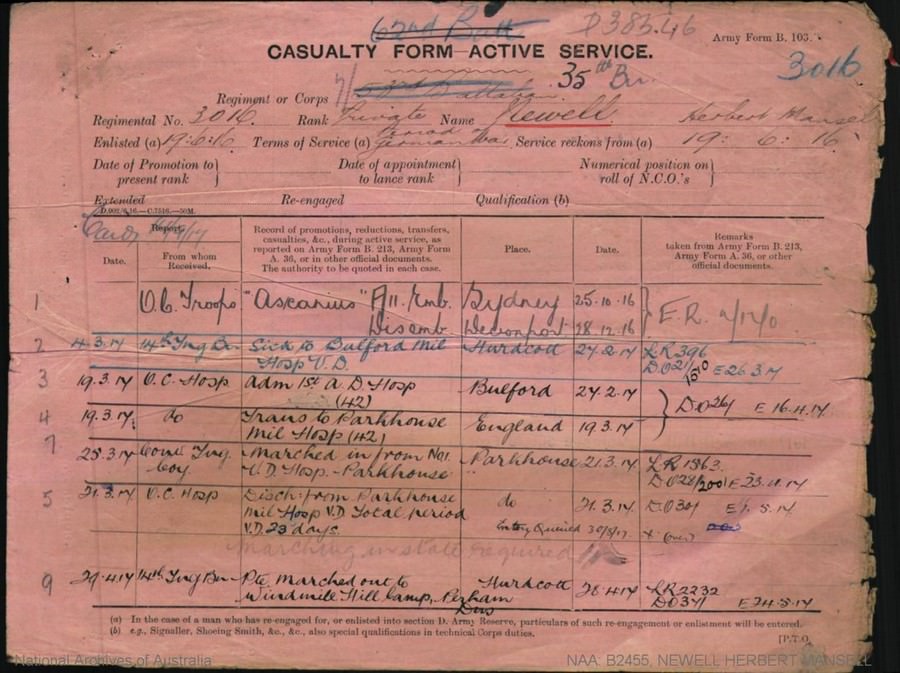 62nd Batt D383.46
Army Form B. 103.
CASUALTY FORM—ACTIVE SERVICE.
3016
35th Bn.
Regiment or Corps Battalion
Regimental No. 3016. Rank Private Name Newell. Herbert Mansell
Enlisted (a) 19:6:16 Terms of Service (a) Period of German War Service reckons from (a) 19: 6: 16
Date of Promotion to present rank } Date of appointment to lance rank } Numerical position on roll of N.C.O.'s }
Extended Re-engaged Qualification (b)
Report.
Date. From whom Received. Record of promotions, reductions, transfers, casualties, &c., during active service, as reported on Army Form B. 213, Army Form A. 36, or in other official documents. The authority to be quoted in each case. Place. Date. Remarks taken from Army Form B. 213, Army Form A. 36, or other official documents.
1 O.C. Troops "Ascanius" A11. Emb. Sydney 25.10.16
Disemb Devonport 28.12.16 E.R.
2 4.3.17 14th Tng Bn Sick to Bulford Mil Hurdcott 24.2.17 LR396
Hosp V.D. E26.3.17
3 19.3.17 O.C. Hosp Adm 1st A.D. Hosp Bulford 24.2.17
(42)
4 19.3.17 do Trans to Parkhouse England 19.3.17 E 16.4.17
Mil Hosp (42)
7 25.3.17 Cond Tng Marched in from No1. Parkhouse 21.3.17 LR1563.
Coy. V.D. Hosp. - Parkhouse
5 21.3.17 O.C. Hosp Disch: from Parkhouse do 21.3.17 E1.5.17
Mil Hosp V.D Total period
V.D. 23 days. Entry Queried
Marching in state required
9 29.4.17 14th Tng Bn Pte marched out to Hurdcott 28.4.17 LR2232
Windmill Hill Camp, Perham E24.5.17
Dns
(a) In the case of a man who has re-engaged for, or enlisted into section D. Army Reserve, particulars of such re-engagement or enlistment will be entered.
(b) e.g., Signaller, Shoeing Smith, &c., &c., also special qualifications in technical Corps duties.
[P.T.O.
National Archives of Australia NAA: B2455, NEWELL HERBERT MANSELL